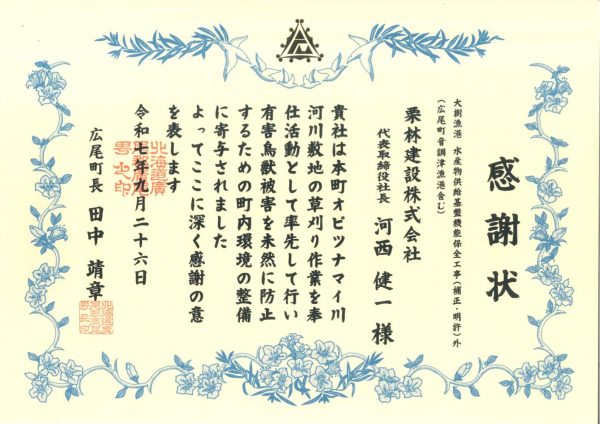 感謝状
大樹漁港 水産物供給基盤機能保全工事(補正・明許)外
(広尾町音調津漁港含む)
栗林建設株式会社
代表取締役社長 河西健一様
貴社は本町オビツナマイ川
河川敷地の草刈り作業を奉
仕活動として率先して行い
有害鳥獣被害を未然に防止
するための町内環境の整備
に寄与されました
よってここに深く感謝の意
を表します
令和七年九月二十六日
広尾町長 田中靖章